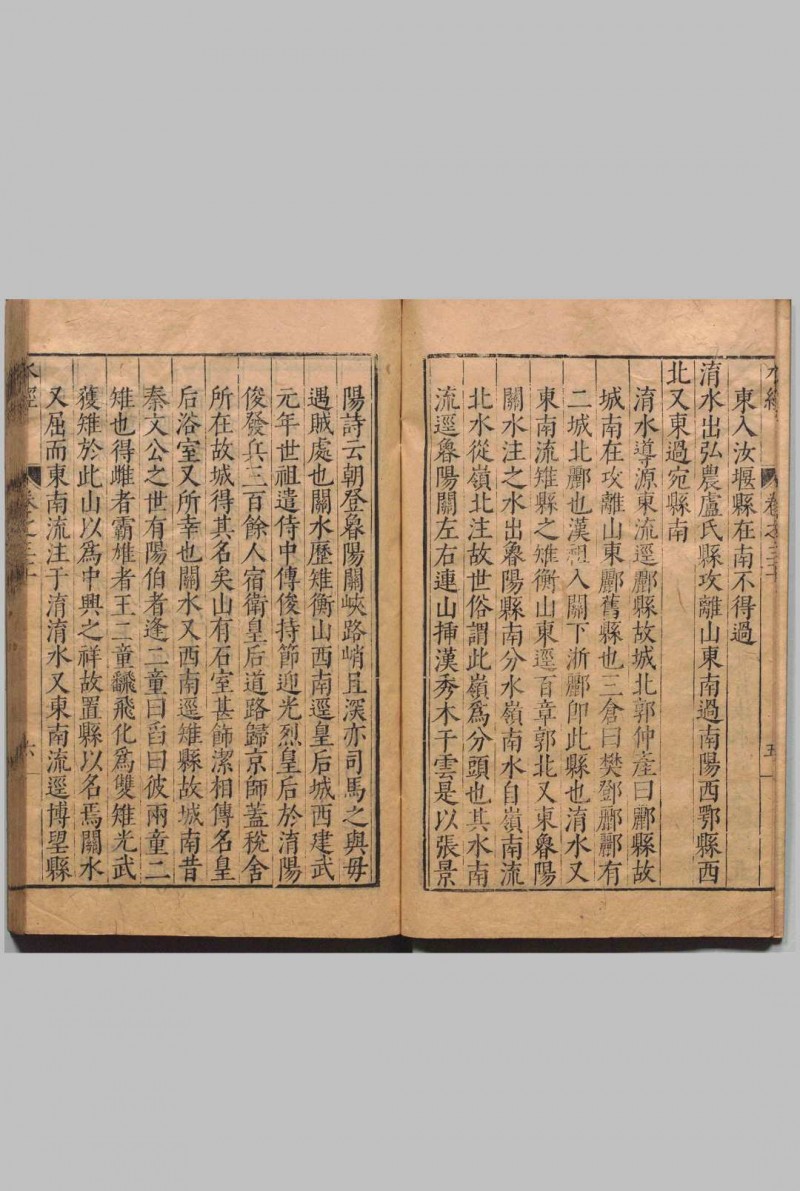 水經
卷之三十
五
東入汝堰縣在南不得過
淯水出弘農盧氏縣攻離山東南過南陽西鄂縣西
北又東過宛縣南
淯水導源東流逕酈縣故城北郭仲產曰酈縣故
城南在攻離山東酈舊縣也三倉曰樊鄧酈酈有
二城北酈也漢祖入關下淅酈卽此縣也淯水又
東南流雉縣之雉衡山東逕百章郭北又東魯陽
關水注之水出魯陽縣南分水嶺南水自嶺南流
北水從嶺北注故世俗謂此嶺爲分頭也其水南
流逕魯陽關左右連山揷漢秀木干雲是以張景
陽詩云朝登魯陽關峽路峭且深亦司馬之與毋
遇賊處也關水歷雉衡山西南逕皇后城西建武
元年世祖遣侍中傅俊持節迎光烈皇后於淯陽
俊發兵三百餘人宿衛皇后道路歸京師蓋稅舍
所在故城得其名矣山有石室甚飾潔相傳名皇
后浴室又所幸也關水又西南逕雉縣故城南昔
秦文公之世有陽伯者逢二童曰舀曰彼兩童二
雉也得雌者霸雄者王二童飜飛化爲雙雉光武
獲雉於此山以爲中興之祥故置縣以名焉關水
又屈而東南流注于淯淯水又東南流逕博望縣
水經
卷之三十
六